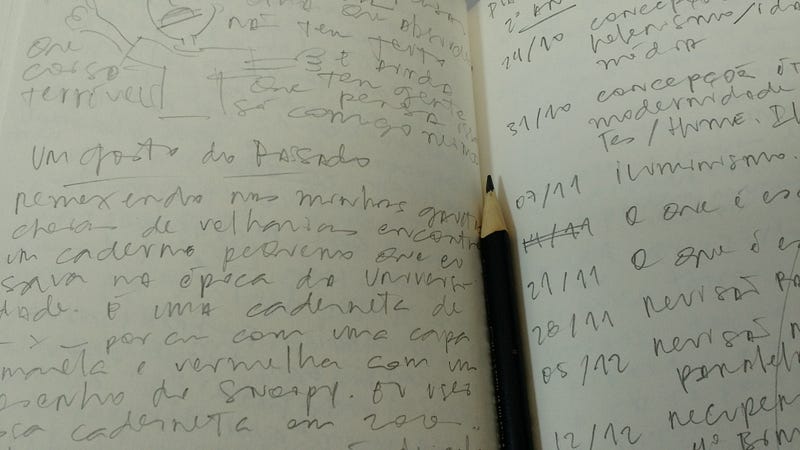 não tem texto
Que
coisa
terrível
E ainda
tem gente
que pensa
só comigo
Um gosto do PASSADO
remexendo nas minhas
cheias de velharias encontro
um caderno pequeno que eu
sava na época da univers
dade. É uma caderneta de
por cm com uma capa
marela e vermelha com um
esenho do Snoopy. Eu usei
ssa caderneta em 2000..
2º AN
24/10 concepçã
helenismo/ida
média
31/10 concepção ét
modernidade
tes/Hume. Il
07/11 iluminismo.
14/11 O que é es
21/11 O que é e
28/11 revisão
05/12 revisão
paralel
12/12 recupe
4º Bim